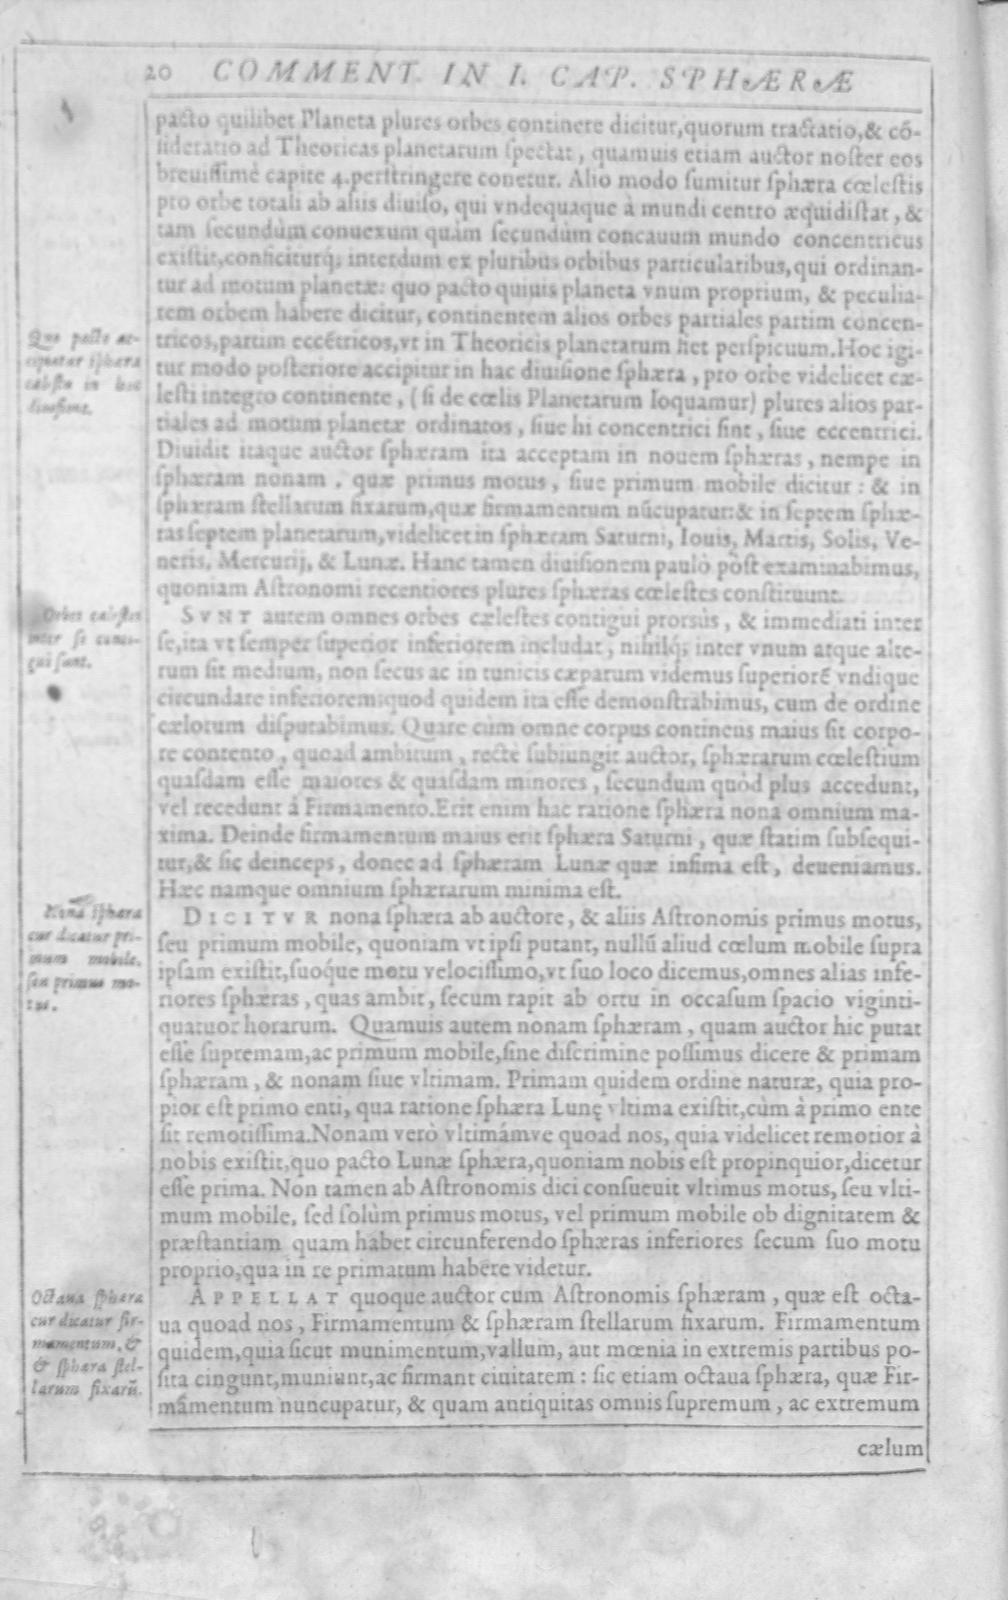 20 COMMENT. IN I. CAP. SPHÆRÆ
pacto quilibet Planeta plures orbes continere dicitur,quorum tractatio,& cõ-
ſideratio ad Theoricas planetarum ſpectat, quamuis etiam auctor noſter eos
breuiſſimè capite 4.perſtringere conetur. Alio modo ſumitur ſphæra cœleſtis
pro orbe totali ab aliis diuiſo, qui vndequaque à mundi centro æquidiſtat, &
tam ſecundùm conuexum quàm ſecundùm concauum mundo concentricus
exiſtit,conficiturq́; interdum ex pluribus orbibus particularibus,qui ordinan-
tur ad motum planetæ: quo pacto quiuis planeta vnum proprium, & peculia-
rem orbem habere dicitur, continentem alios orbes partiales partim concen-
tricos,partim eccẽtricos,vt in Theoricis planetarum fiet perſpicuum.Hoc igi-
tur modo poſteriore accipitur in hac diuiſione ſphæra, pro orbe videlicet cæ-
leſti integro continente, (ſi de cœlis Planetarum loquamur) plures alios par-
tiales ad motum planetæ ordinatos, ſiue hi concentrici ſint, ſiue eccentrici.
Diuidit itaque auctor ſphæram ita acceptam in nouem ſphæras, nempe in
ſphæram nonam, quæ primus motus, ſiue primum mobile dicitur: & in
ſphæram ſtellarum fixarum,quæ firmamentum nũcupatur:& in ſeptem ſphæ-
ras ſeptem planetarum,videlicet in ſphæram Saturni, Iouis, Martis, Solis, Ve-
neris, Mercurij, & Lunæ. Hanc tamen diuiſionem paulò pòſt examinabimus,
quoniam Aſtronomi recentiores plures ſphæras cœleſtes conſtituunt.
Quo pacto ac-
cipiatur ſphæra
cæleſtis in hac
diuiſione.
SVNT autem omnes orbes cæleſtes contigui prorsùs, & immediati inter
ſe,ita vt ſemper ſuperior inferiorem includat, nihilq́; inter vnum atque alte-
rum ſit medium, non ſecus ac in tunicis cæparum videmus ſuperiorẽ vndique
circundare inferiorem:quod quidem ita eſſe demonſtrabimus, cum de ordine
cælorum diſputabimus. Quare cùm omne corpus continens maius ſit corpo-
re contento, quoad ambitum, rectè ſubiungit auctor, ſphærarum cœleſtium
quaſdam eſſe maiores & quaſdam minores, ſecundum quòd plus accedunt,
vel recedunt á Firmamento.Erit enim hac ratione ſphæra nona omnium ma-
xima. Deinde firmamentum maius erit ſphæra Saturni, quæ ſtatim ſubſequi-
tur,& ſic deinceps, donec ad ſphæram Lunæ quæ infima eſt, deueniamus.
Hæc namque omnium ſphærarum minima eſt.
Orbes cæleſtes
inter ſe conti-
gui ſunt.
DICITVR nona ſphæra ab auctore, & aliis Aſtronomis primus motus,
ſeu primum mobile, quoniam vt ipſi putant, nullũ aliud cœlum mobile ſupra
ipſam exiſtit,ſuoq́ue motu velociſſimo,vt ſuo loco dicemus,omnes alias infe-
riores ſphæras, quas ambit, ſecum rapit ab ortu in occaſum ſpacio viginti-
quatuor horarum. Quamuis autem nonam ſphæram, quam auctor hic putat
eſſe ſupremam,ac primum mobile,ſine diſcrimine poſſimus dicere & primam
ſphæram, & nonam ſiue vltimam. Primam quidem ordine naturæ, quia pro-
pior eſt primo enti, qua ratione ſphæra Lunę vltima exiſtit,cùm à primo ente
ſit remotiſſima.Nonam verò vltimámve quoad nos, quia videlicet remotior à
nobis exiſtit,quo pacto Lunæ ſphæra,quoniam nobis eſt propinquior,dicetur
eſſe prima. Non tamen ab Aſtronomis dici conſueuit vltimus motus, ſeu vlti-
mum mobile, ſed ſolùm primus motus, vel primum mobile ob dignitatem &
præſtantiam quam habet circunferendo ſphæras inferiores ſecum ſuo motu
proprio,qua in re primatum habere videtur.
Nona ſphæra
cur dicatur pri-
mum mobile,
ſeu primus mo-
tus.
APPELLAT quoque auctor cum Aſtronomis ſphæram, quæ eſt octa-
ua quoad nos, Firmamentum & ſphæram ſtellarum fixarum. Firmamentum
quidem,quia ſicut munimentum,vallum, aut mœnia in extremis partibus po-
ſita cingunt,muniunt,ac firmant ciuitatem: ſic etiam octaua ſphæra, quæ Fir-
mamentum nuncupatur, & quam antiquitas omnis ſupremum, ac extremum
Octaua ſphæra
cur dicatur fir-
mamentum, &
& ſphæra ſtel-
larum fixarũ.
cælum